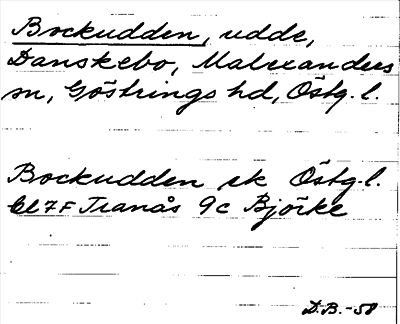 Bockudden, udde,
Danskebo, Malexanders
sn, Göstrings hd, Östg. l.
Bockudden ek Östg. l.
Bl 7F Tranås 9c Björke
D.B. -58